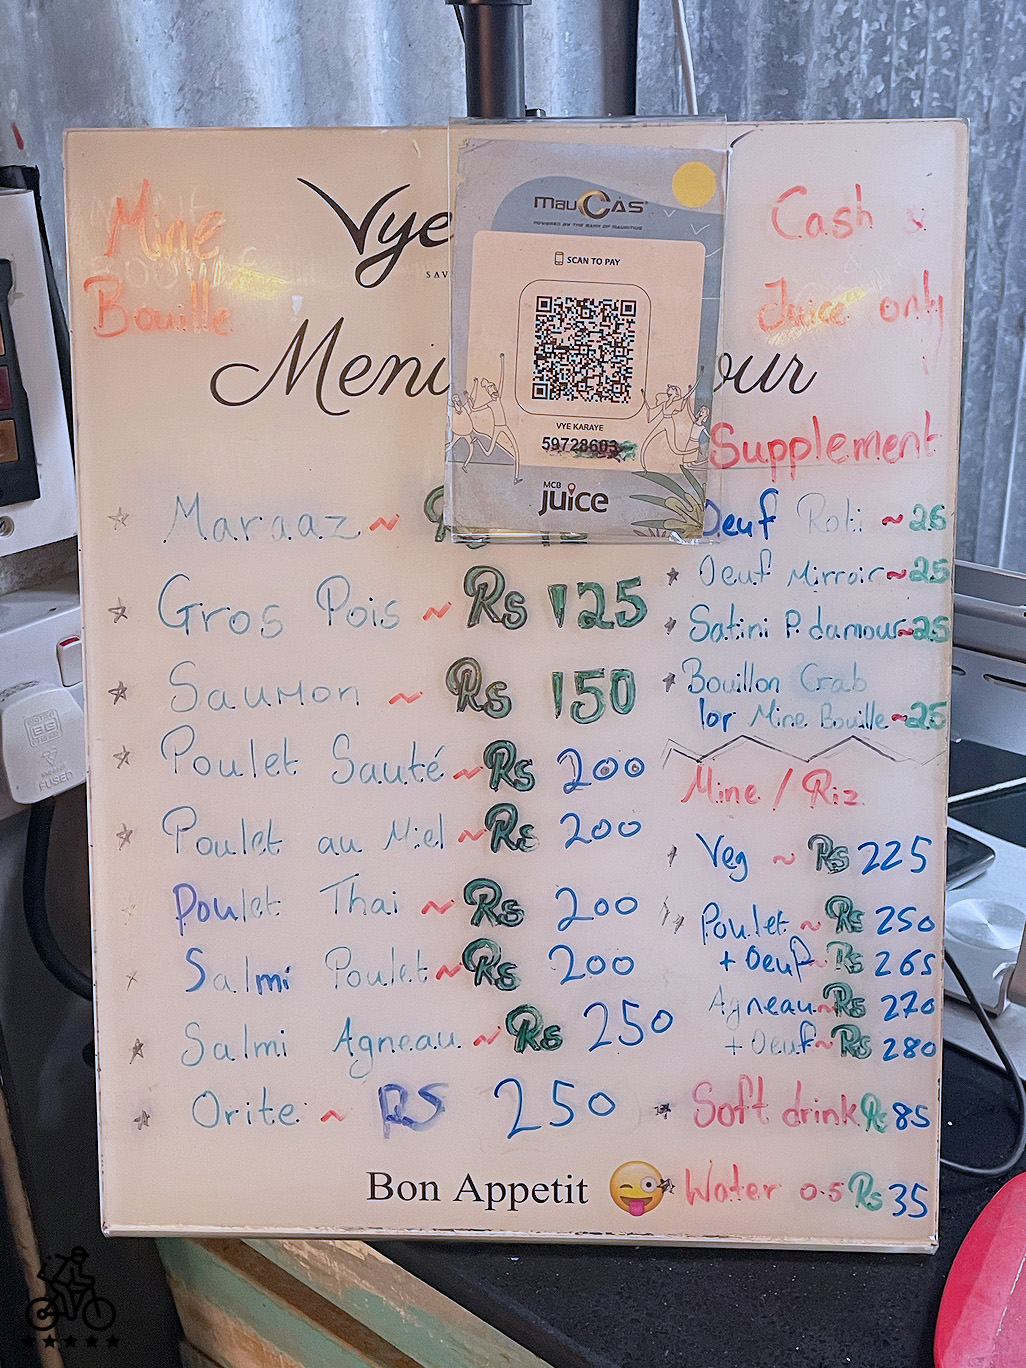 Mine
Bouille
Vye
SAV
Menu
our
Cash &
Juice only
!
mauCAS
POWERED BY THE BANK OF MAURITIUS
SCAN TO PAY
VYE KARAYE
59728603
MCB
juice
Maraaz ~ Rs
Gros Pois ~ Rs 125
Saumon ~ Rs 150
Poulet Sauté ~ Rs 200
Poulet au Miel ~ Rs 200
Poulet Thai ~ Rs 200
Salmi Poulet ~ Rs 200
Salmi Agneau ~ Rs 250
Orite ~ RS 250
Bon Appetit
Supplement
Oeuf Roti ~ 25
Oeuf Mirroir ~ 25
Satini P. damour ~ 25
Bouillon Crab
lor Mine Bouille ~ 25
Mine / Riz
Veg ~ Rs 225
Poulet ~ Rs 250
+ Oeuf ~ Rs 265
Agneau ~ Rs 270
+ Oeuf ~ Rs 280
Soft drink Rs 85
Water 0.5 Rs 35
FUSED